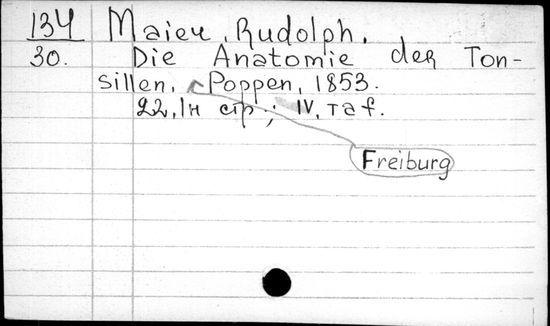 134 Maier, Rudolph.
30. Die Anatomie der Ton-
sillen, Poppen, 1853.
22, 1н стр.; IV, таf.
Freiburg